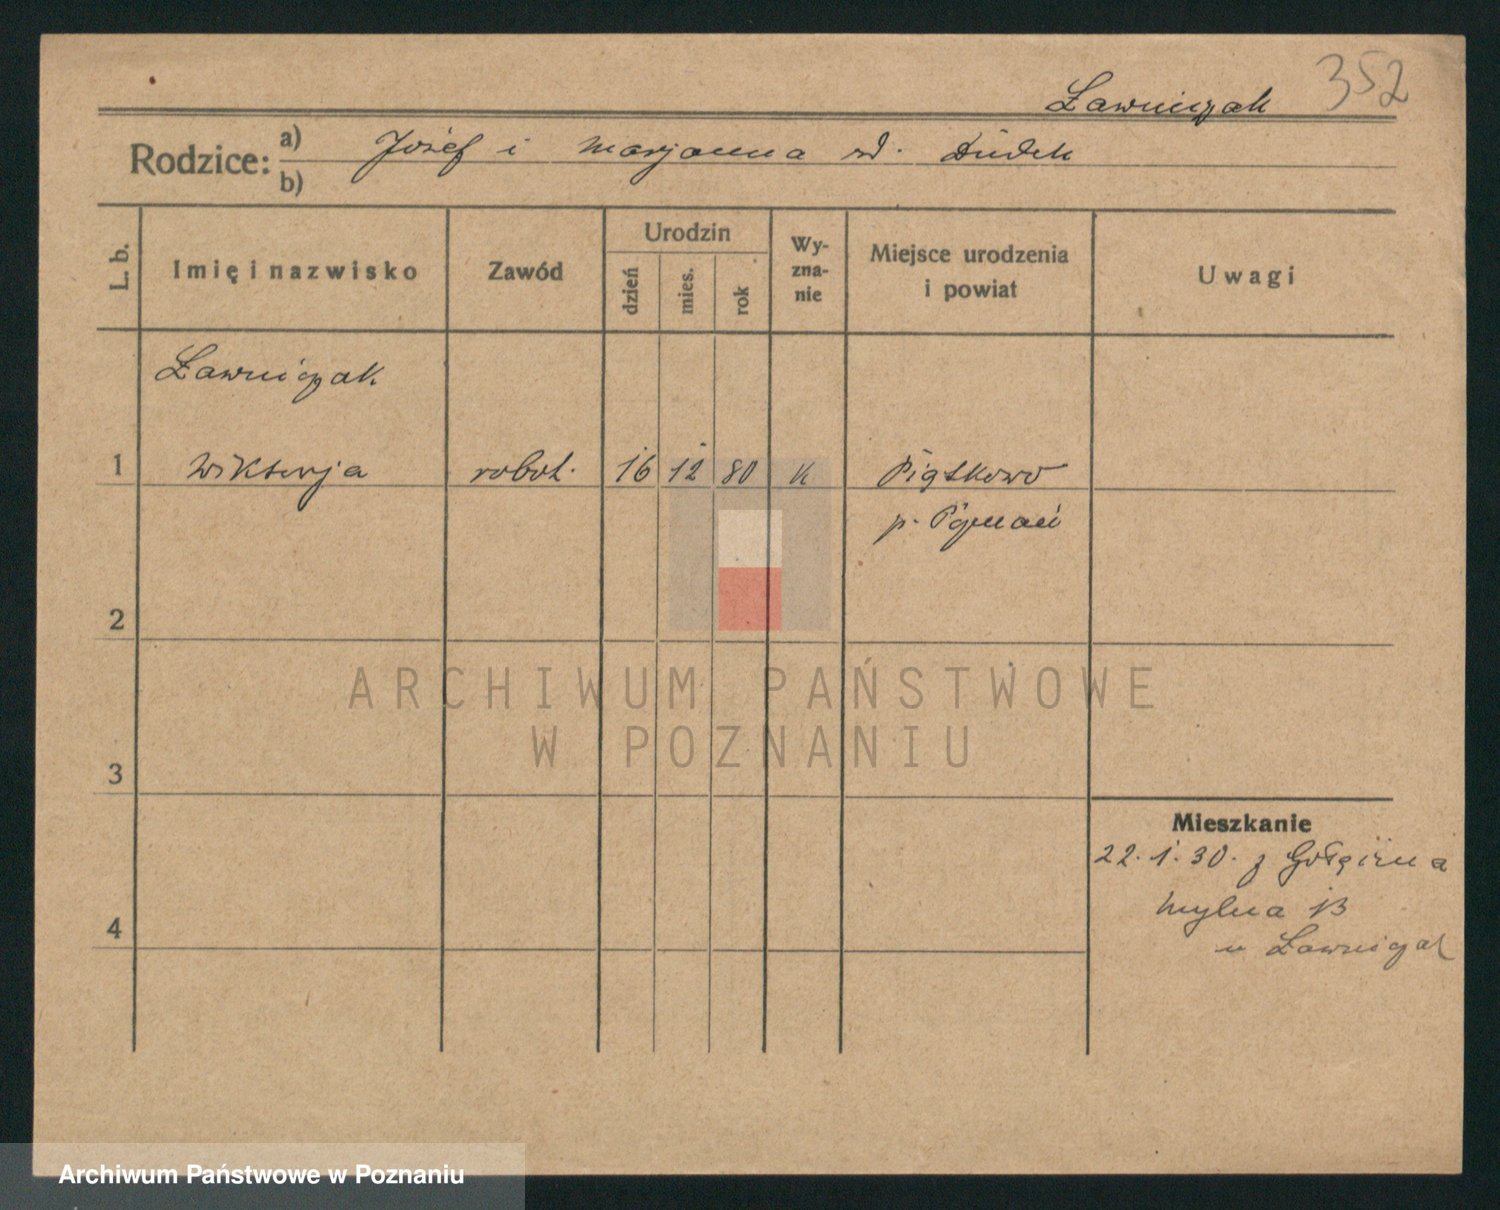 352
Ławniczak
Rodzice: a) Józef i Marjanna rd. Dudek
b)
L. b.
Imię i nazwisko
Zawód
Urodzin
dzień
mies.
rok
Wy-
zna-
nie
Miejsce urodzenia
i powiat
Uwagi
Ławniczak
1 Wiktorja robot. 16 12 80 k Piątkowo
p. Poznań
2
ARCHIWUM PAŃSTWOWE
W POZNANIU
3
Mieszkanie
22. 1. 30. z Gołęcina
Mylna 13
u Ławniczak
4
Archiwum Państwowe w Poznaniu